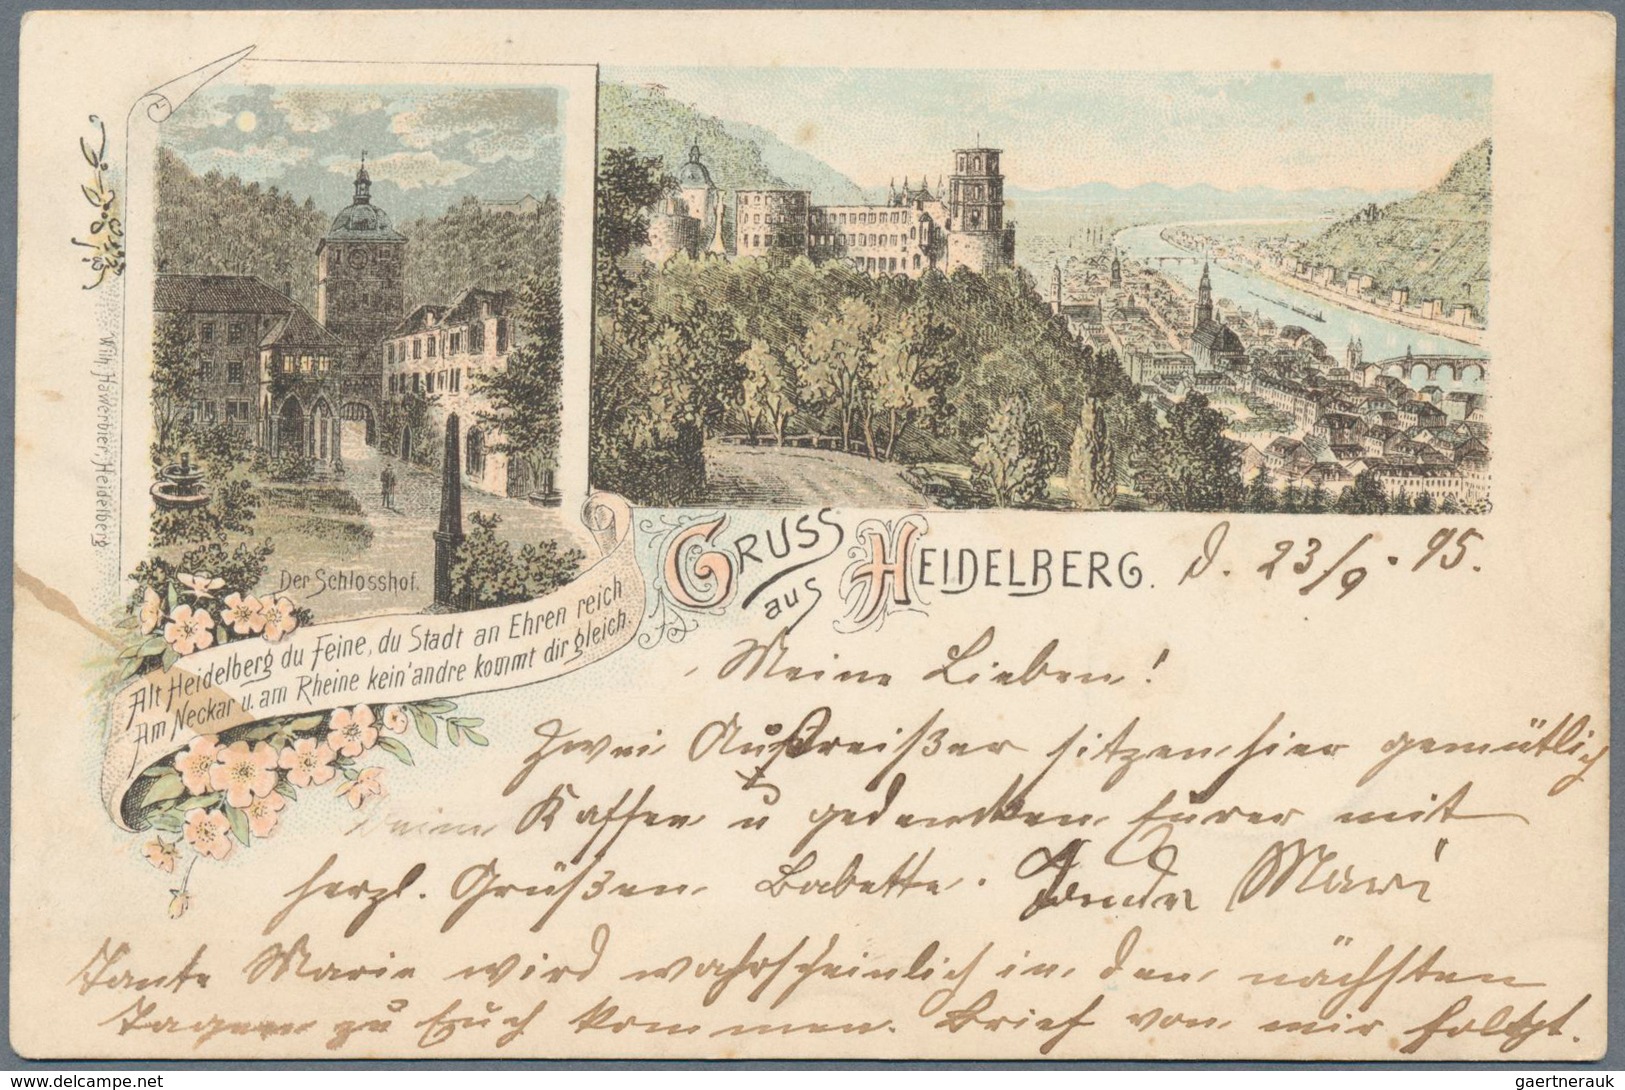 Wilh. Hawerbier, Heidelberg.
Der Schlosshof.
Alt Heidelberg du Feine, du Stadt an Ehren reich
Am Neckar u. am Rheine kein'andre kommt dir gleich.
GRUSS aus HEIDELBERG. d. 23/9. 95.
Meine Lieben!
Zwei Außreißer sitzen hier gemütlich
beim Kaffee u gedenken Eurer mit
herzl. Grüßen Babette. Marie
Tante Marie wird wahrscheinlich in den nächsten
Tagen zu Euch kommen. Brief von mir folgt.
gaertnerauk